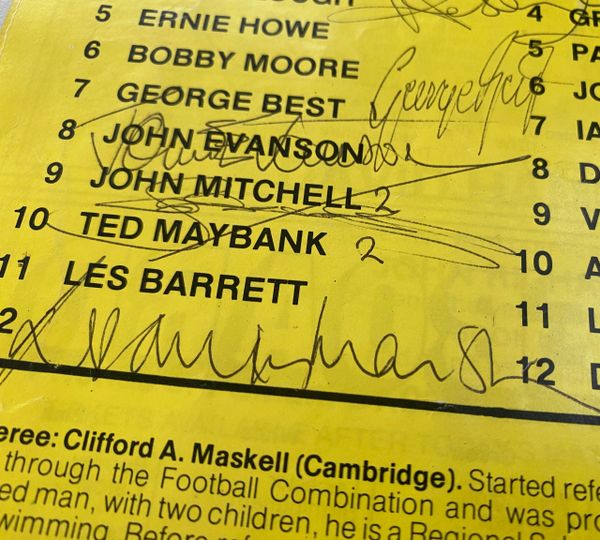 5 ERNIE HOWE
6 BOBBY MOORE
7 GEORGE BEST
George Best
8 JOHN EVANSON
9 JOHN MITCHELL 2
10 TED MAYBANK 2
11 LES BARRETT
2
4
5 PA
6 JO
7 IA
8 D
9 V
10 A
11 L
12 D
eree: Clifford A. Maskell (Cambridge). Started refe
through the Football Combination and was pro
ed man, with two children, he is a Regional
wimming. Before